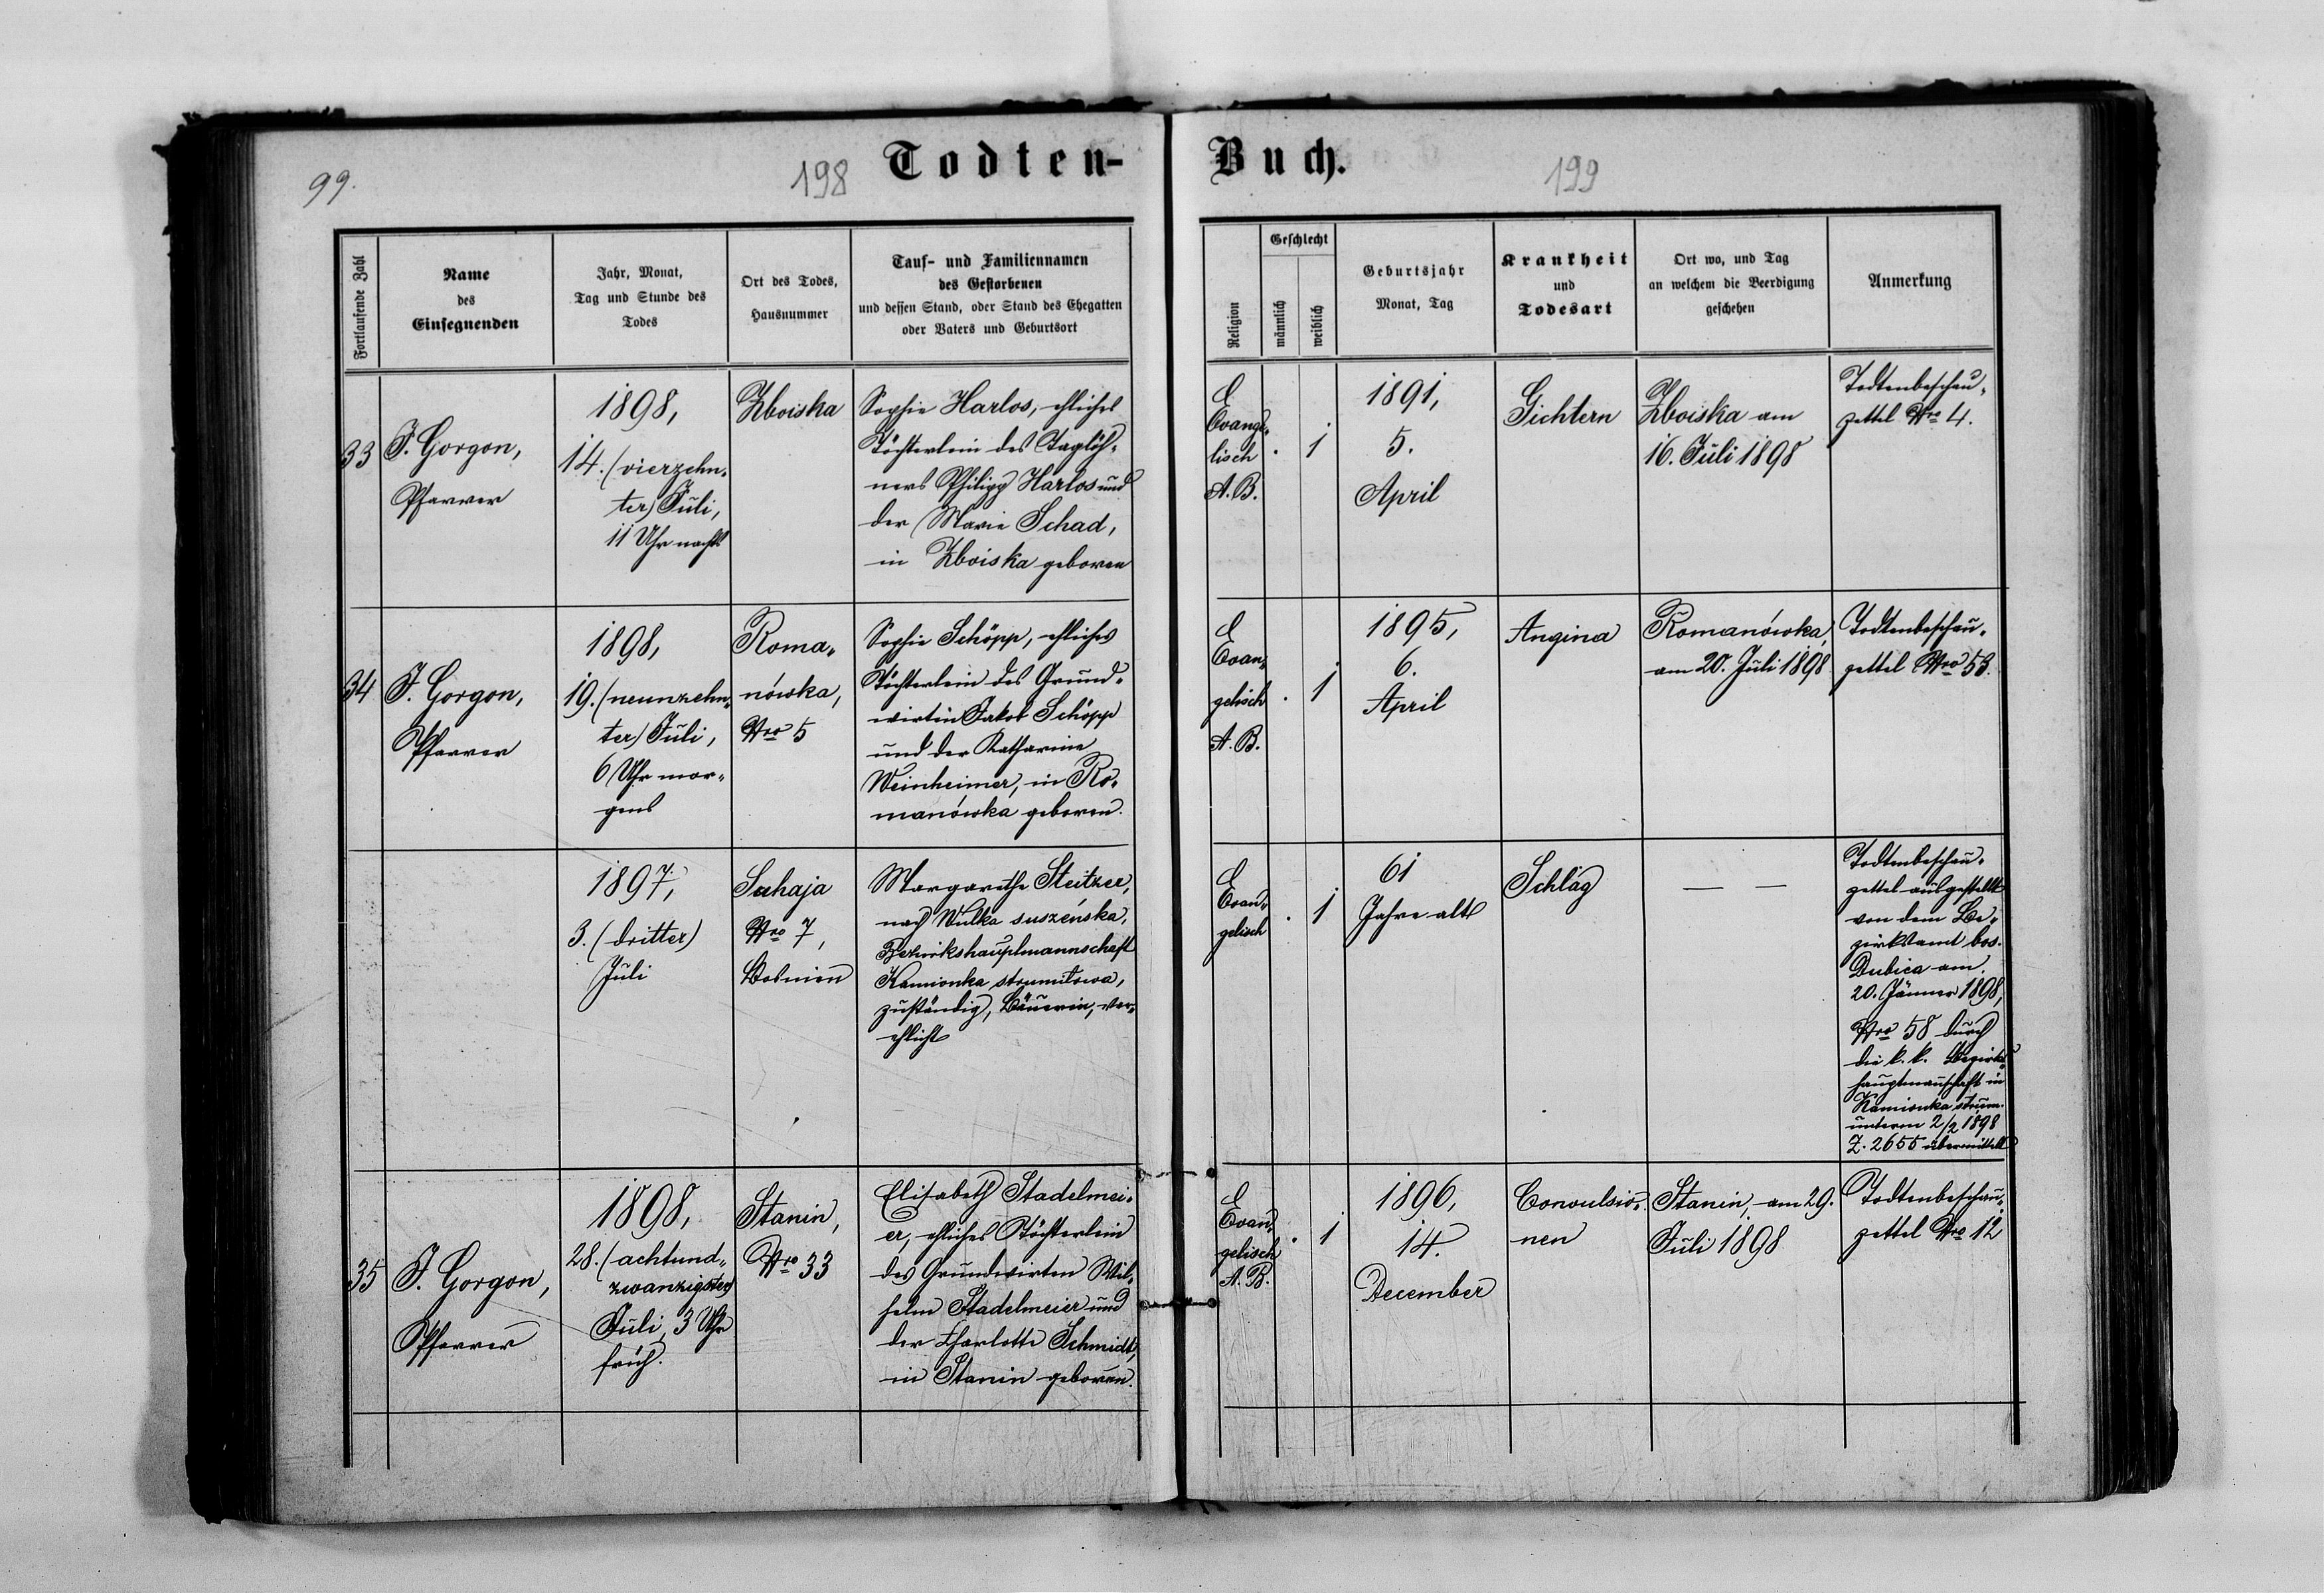 99.
198
Todten-
Buch.
199
Fortlaufende Zahl
Name
des
Einsegnenden
Jahr, Monat,
Tag und Stunde des
Todes
Ort des Todes,
Hausnummer
Tauf- und Familiennamen
des Gestorbenen
und dessen Stand, oder Stand des Ehegatten
oder Vaters und Geburtsort
Religion
Geschlecht
männlich
weiblich
Geburtsjahr
Monat, Tag
Krankheit
und
Todesart
Ort wo, und Tag
an welchem die Beerdigung
geschehen
Anmerkung
33
J. Gorgon,
Pfarrer
1898,
14. (vierzehn-
ter) Juli,
11 Uhr nachts
Zboiska
Sophie Harlos, ehliches
Töchterlein des Taglöh-
ners Philipp Harlos und
der Marie Schad,
in Zboiska geboren
Evange-
lisch
A. B.
1
1891,
5.
April
Gichtern
Zboiska am
16. Juli 1898
Todtenbeschau-
zettel Nro 4.
34
J. Gorgon,
Pfarrer
1898,
19. (neunzehn-
ter) Juli,
6 Uhr mor-
gens
Roma-
nówka,
Nro 5
Sophie Schöpp, ehliches
Töchterlein des Grund-
wirten Jakob Schöpp
und der Katharine
Weinheimer, in Ro-
manówka geboren.
Evan-
gelisch
A. B.
1
1895,
6.
April
Angina
Romanówka,
am 20. Juli 1898
Todtenbeschau-
zettel Nro 53.
1897,
3. (dritter)
Juli
Suhaja
Nro 7,
Bosnien
Margarethe Steitzer,
nach Wulka suszeńska,
Bezirkshauptmannschaft
Kamionka strumiłowa,
zuständig, Bäuerin, ver-
ehlicht
Evan-
gelisch
1
61
Jahre alt
Schlag
— —
Todtenbeschau-
zettel ausgestellt
von dem Be-
zirksamt bos.
Dubica am
20. Jänner 1898,
Nro 58 durch
die k. k. Bezirks-
hauptmannschaft in
Kamionka strum.
unterm 2/2 1898
Z. 2655 übermittelt
35
J. Gorgon,
Pfarrer
1898,
28. (achtund-
zwanzigster)
Juli, 3 Uhr
früh.
Stanin,
Nro 33
Elisabeth Stadelmei-
er, ehliches Töchterlein
des Grundwirten Wil-
helm Stadelmeier und
der Charlotte Schmidt,
in Stanin geboren.
Evan-
gelisch
A. B.
1
1896,
14.
December
Convulsio-
nen
Stanin, am 29.
Juli 1898
Todtenbeschau-
zettel Nro 12